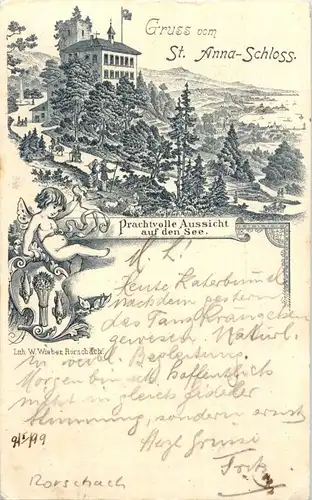 Gruss vom
St. Anna-Schloss.
Prachtvolle Aussicht
auf den See.
M. L.
Heute Katerbummel
nachdem gestern
das Tanzkränzchen
gewesen. Natürl.
in weibl. Begleitung.
Morgen bin ich hoffentlich
nicht in gleich fideler
Stimmung, sondern ernst
Herzl Grüsse
Fritz
Lith. W. Weber, Rorschach
Rorschach